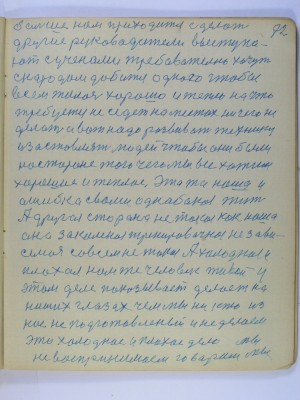 72
нам приходится сделат
другие руководители выступа-
ют с учеными требователно хочут
с народом добится одного чтобы
всем тикоя хорошо и тепло на это
требуети не седет на местах ничего не
делат а вот надо розвиват технику
и заставлят людей чтобы они были
на стороне того чего мы все хотим
хорошие и теплое, Это та наша и
ошибка своими однабокоя этот
А другая сторона не токоя как наша
она законная тренировочная незави-
симая совсем не токоя А холодная и
плохая нам те человек живет и
этом деле показывает делает на
наших глазах чем мы на южо из
нас не подготовленый и не делаем
Это холодное и плохое дело мы
не воспренимаем говорим мы